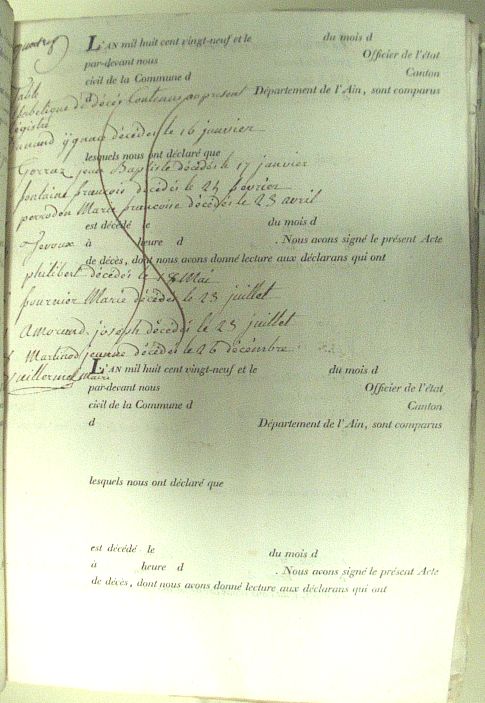 L'AN mil huit cent vingt-neuf et le du mois d
par-devant nous Officier de l'état
civil de la Commune d Canton
d Département de l'Ain, sont comparus
Table
alphabétique de décés Contenus au présent
régistre
ygnace décédés le 16 janvier
lesquels nous ont déclaré que
Gorraz jean Baptiste décédés le 17 janvier
fontaine francois décédés le 24 février
perrodon Marie francoise décédés le 23 avril
est décédé le du mois d
à heure d . Nous avons signé le présent Acte
de décès, dont nous avons donné lecture aux déclarans qui ont
philibert décédés le 18 Mai
fournier Marie décédés le 23 juillet
Amorand joseph décédés le 23 juillet
Martinod jeanne décédés le 26 décembre
Guillermet Maire
L'AN mil huit cent vingt-neuf et le du mois d
par-devant nous Officier de l'état
civil de la Commune d Canton
d Département de l'Ain, sont comparus
lesquels nous ont déclaré que
est décédé le du mois d
à heure d . Nous avons signé le présent Acte
de décès, dont nous avons donné lecture aux déclarans qui ont